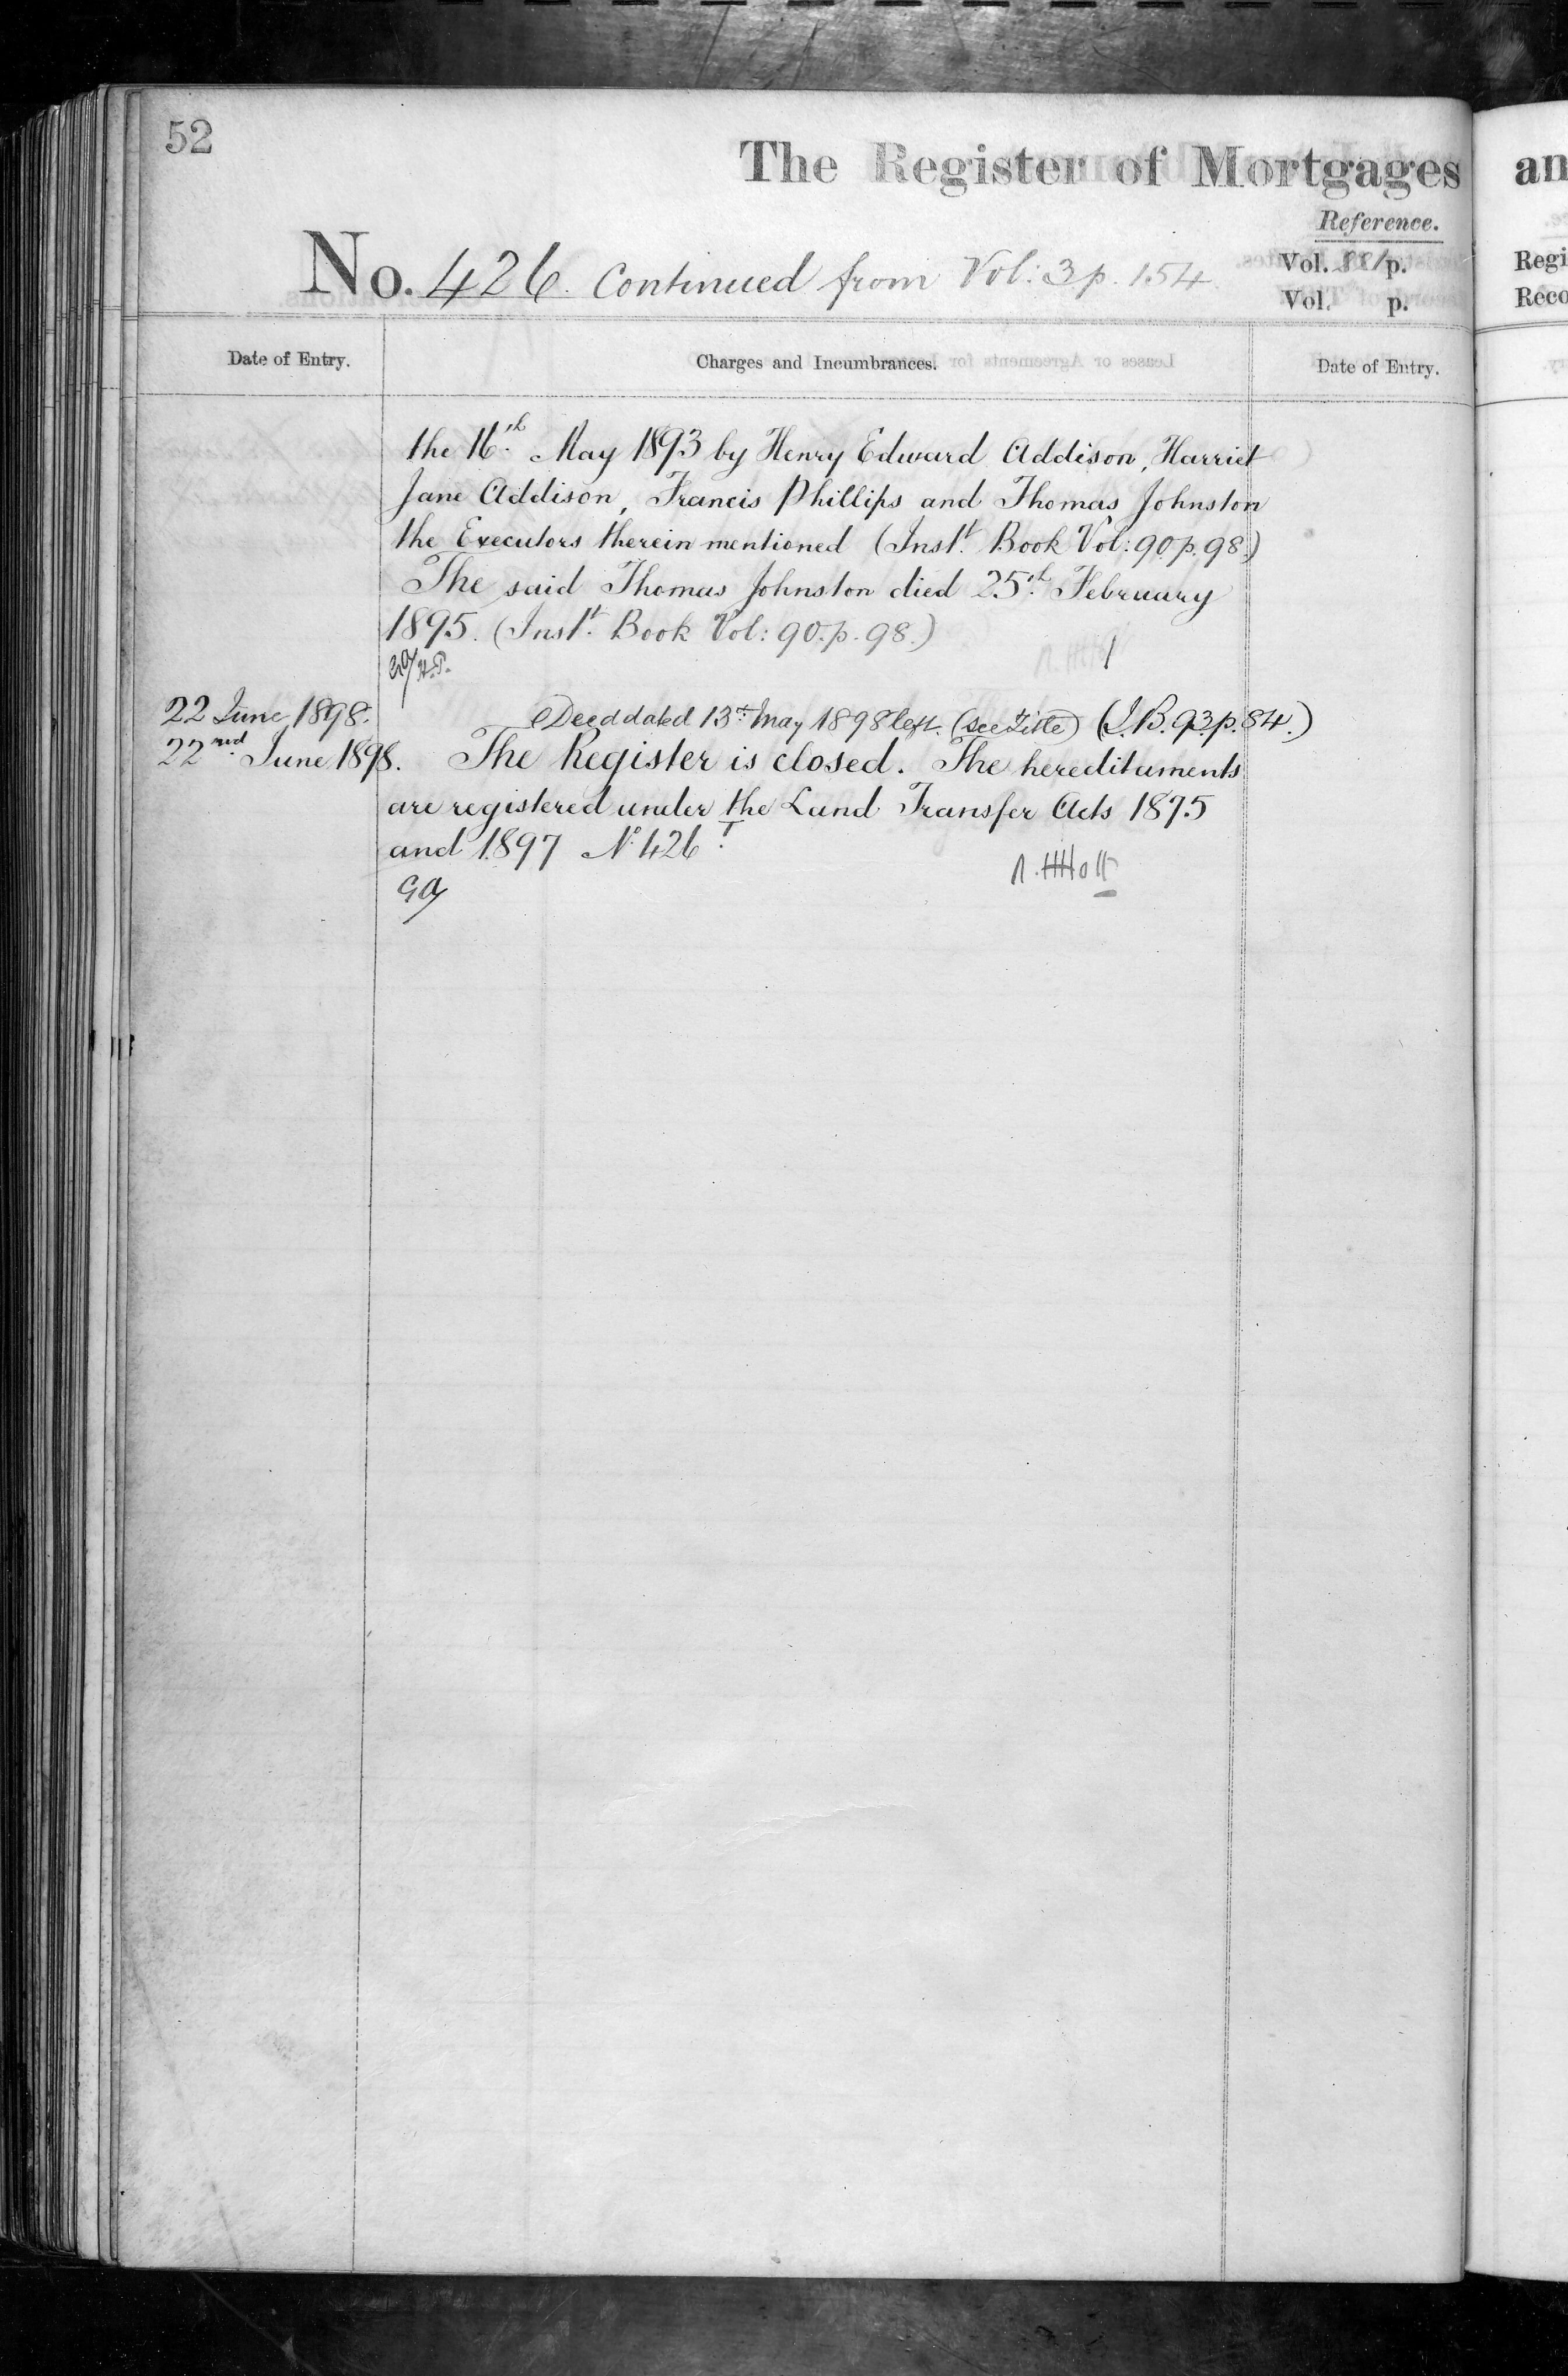 52
The Register of Mortgages
an
Reference.
No. 426. Continued from Vol: 3 p. 154
Vol. p.
Vol. p.
Regi
Reco
Date of Entry.
Charges and Incumbrances.
Date of Entry.
the 16th May 1893 by Henry Edward Addison, Harriet
Jane Addison, Francis Phillips and Thomas Johnston
the Executors therein mentioned (Inst. Book Vol: 90. p. 98.)
The said Thomas Johnston died 25th February
1895. (Inst. Book Vol: 90. p. 98.)
22 June 1898. Deed dated 13th May 1898 left. (see Title) (I.B. 93. p. 84.)
22nd June 1898. The Register is closed. The hereditaments
are registered under the Land Transfer Acts 1875
and 1897 No 426 T.
GA